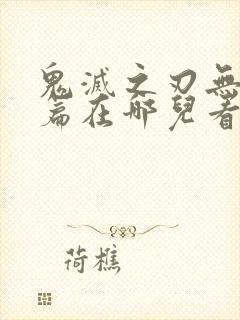 鬼滅之刃無
篇在哪兒看
荷樵